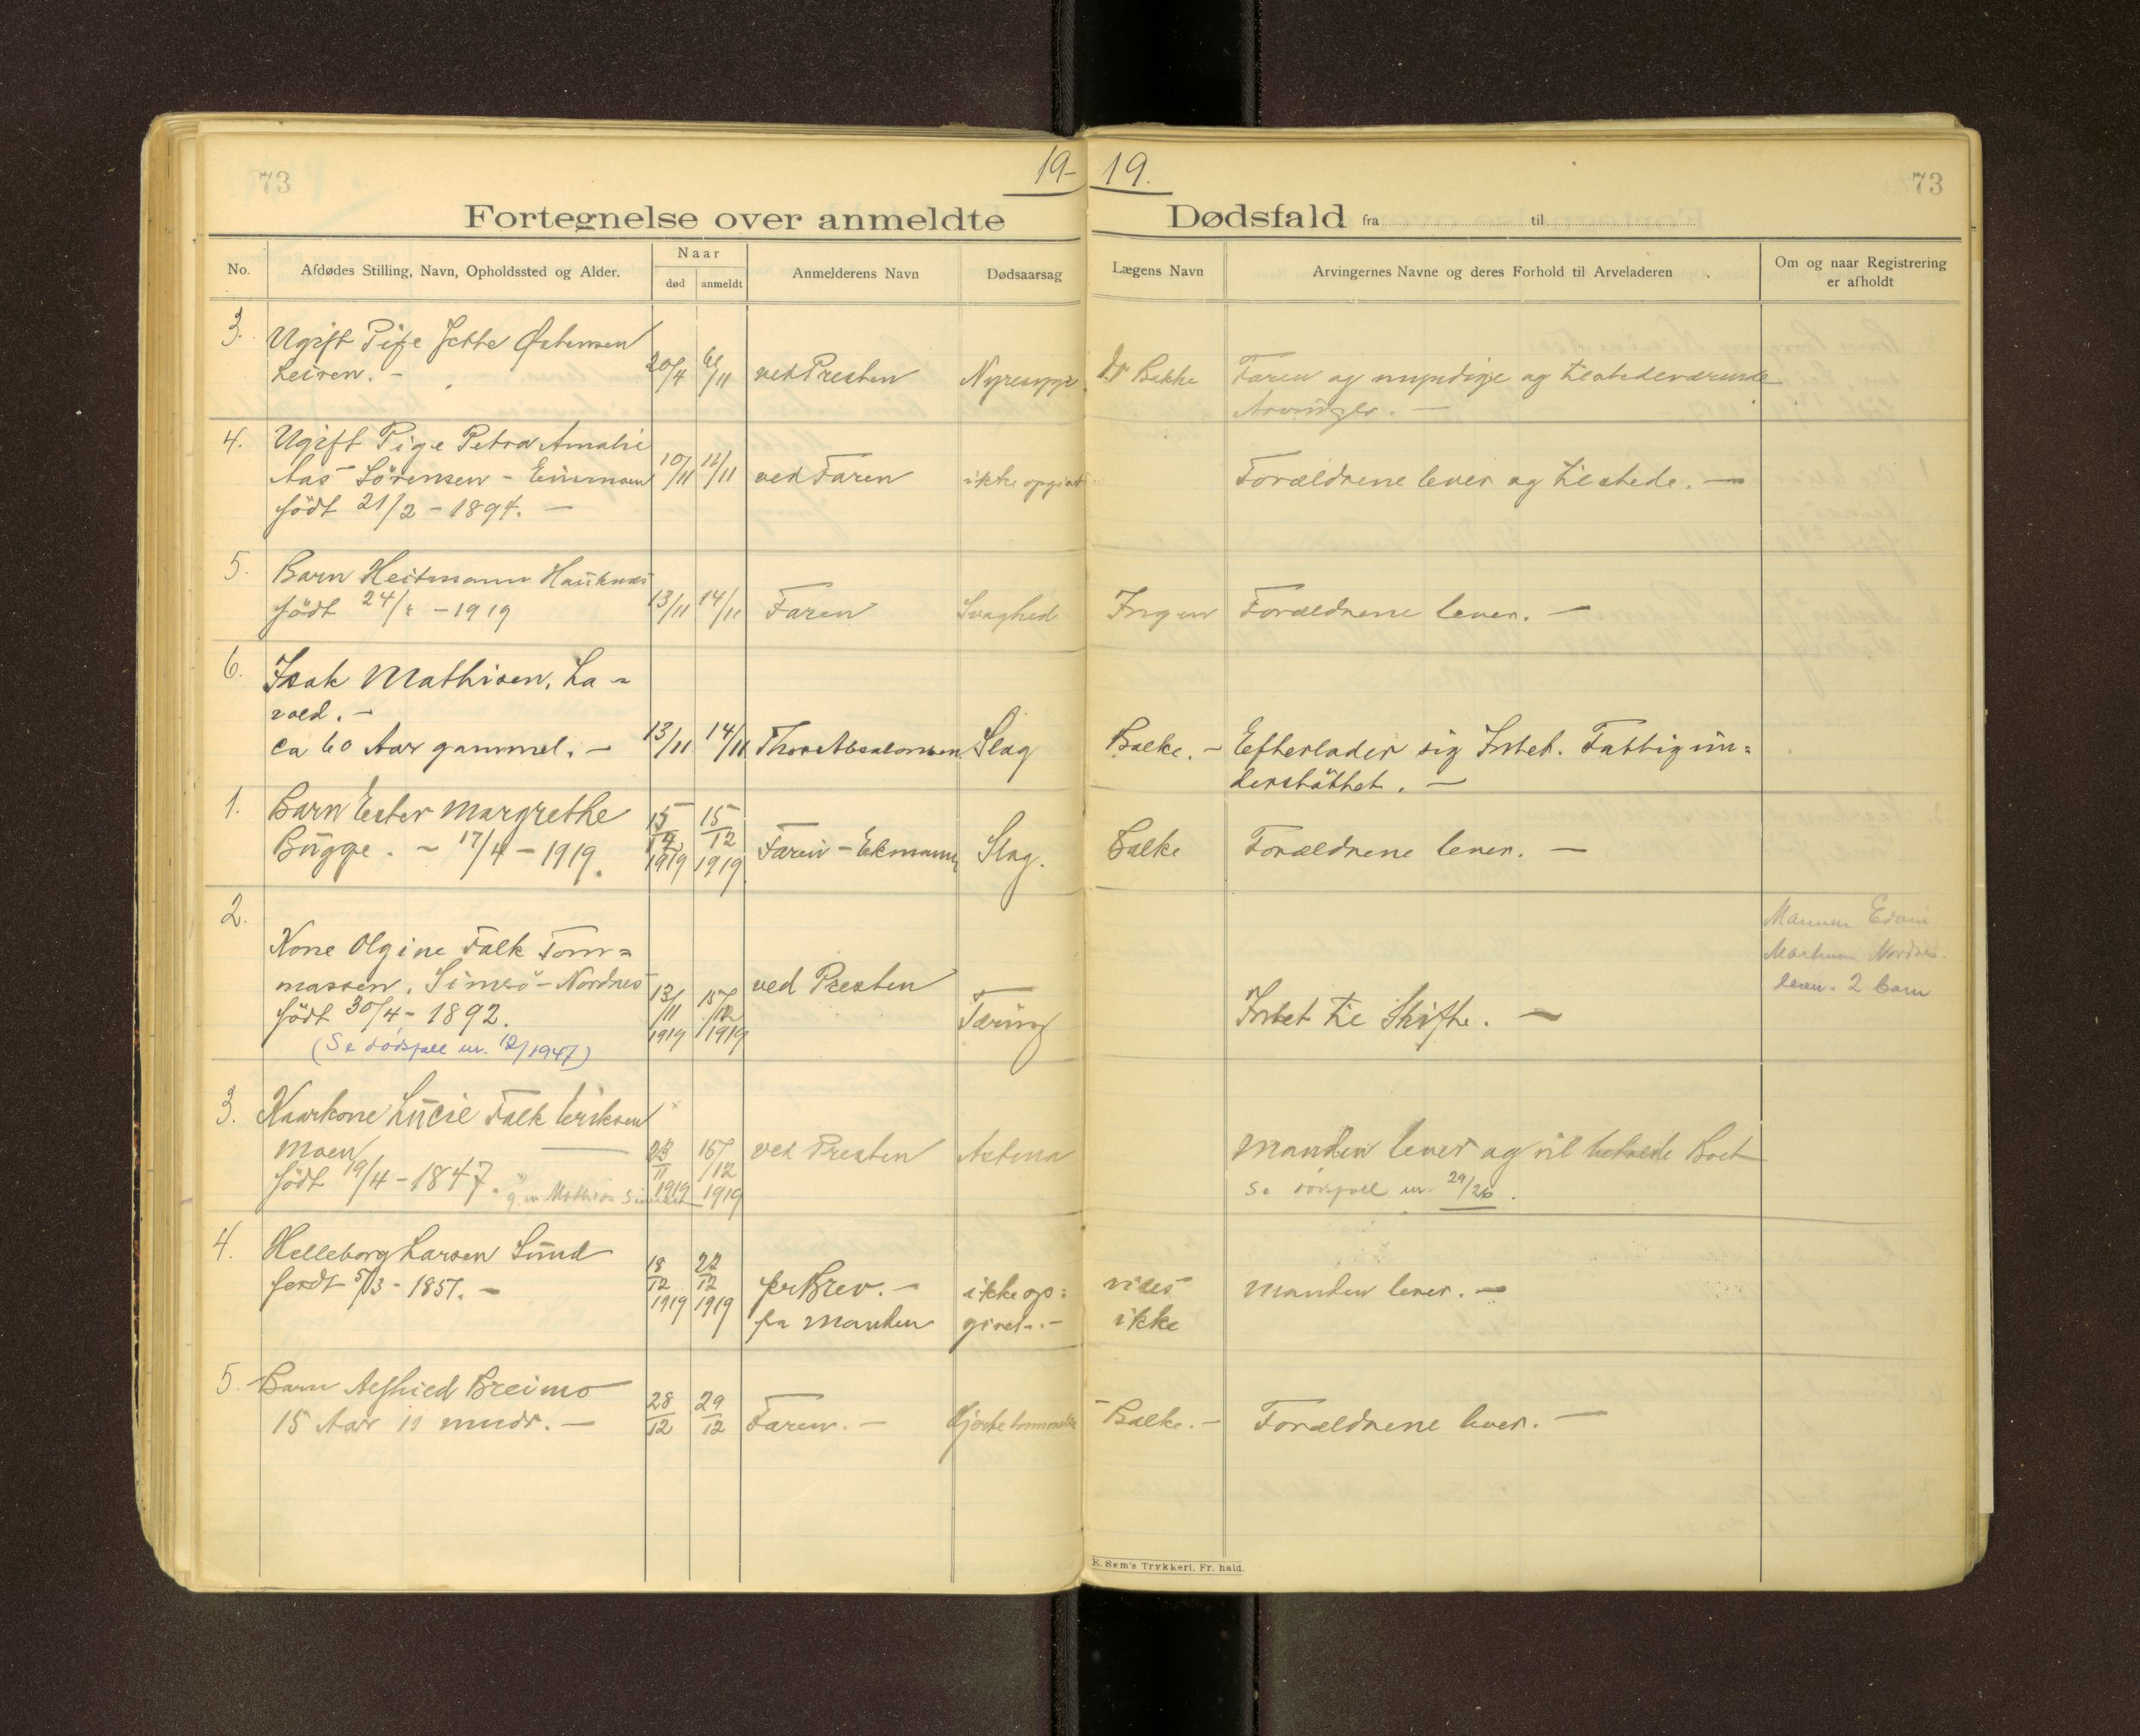 73
19-
19.
73
Fortegnelse over anmeldte
Dødsfald fra til
No.
Afdødes Stilling, Navn, Opholdssted og Alder.
Naar
død
anmeldt
Anmelderens Navn
Dødsaarsag
Lægens Navn
Arvingernes Navne og deres Forhold til Arveladeren
Om og naar Registrering
er afholdt
3.
Ugift Pige Jette Østensen
Leiren. -
20/4
/11
ved Presten
Dr Bakke
Faren og myndige og tilstedeværende
Arvinger. -
4.
Ugift Pige Petra Amalie
Aas Sörensen -
födt 21/2 - 1894. -
10/11
12/11
ved Faren
ikke opgivet
Forældrene lever og tilstede. -
5.
Barn Heitmann Hauknes
födt 24/8 - 1919
13/11
14/11
Faren
Svaghed
Ingen
Forældrene lever. -
6.
Isak Mathisen, La-
vold. -
ca 60 Aar gammel. -
13/11
14/11
Thore Absalonsen
Slag
Balke. -
Efterlader sig Intet. Fattigun=
derstøttet. -
1.
Barn Ester Margrethe
Bugge. - 17/4 - 1919.
15/12 1919
15/12 1919
Faren - Ekmann
Slag.
Balke
Forældrene lever. -
2.
Kone Olgine Falk Tom=
massen, Simsö - Nordnes
födt 30/4 - 1892.
(Se dødsfall nr. 12/1947)
13/11 1919
15/12 1919
ved Presten
Tæring
Intet til Skifte. -
Mannen Edvin
Martinsen Nordnes.
lever. 2 barn
3.
Kaarkone Lucie Falk Eriksen
Moen
födt 19/4 - 1847.
g.m. Mathias
23/11 1919
15/12 1919
ved Presten
Astma
Manden lever og vil Boet
Se dödsfall nr. 29/26.
4.
Helleborg Larsen Sund
födt 5/3 - 1851. -
18/12 1919
22/12 1919
pr Brev. -
fra Manden
ikke op=
givet. -
vides
ikke
Manden lever. -
5.
Barn Alfhild Breimo
15 Aar 11 mndr. -
28/12
29/12
Faren. -
Balke. -
Forældrene lever. -
E. Sem's Trykkeri, Fr. hald.